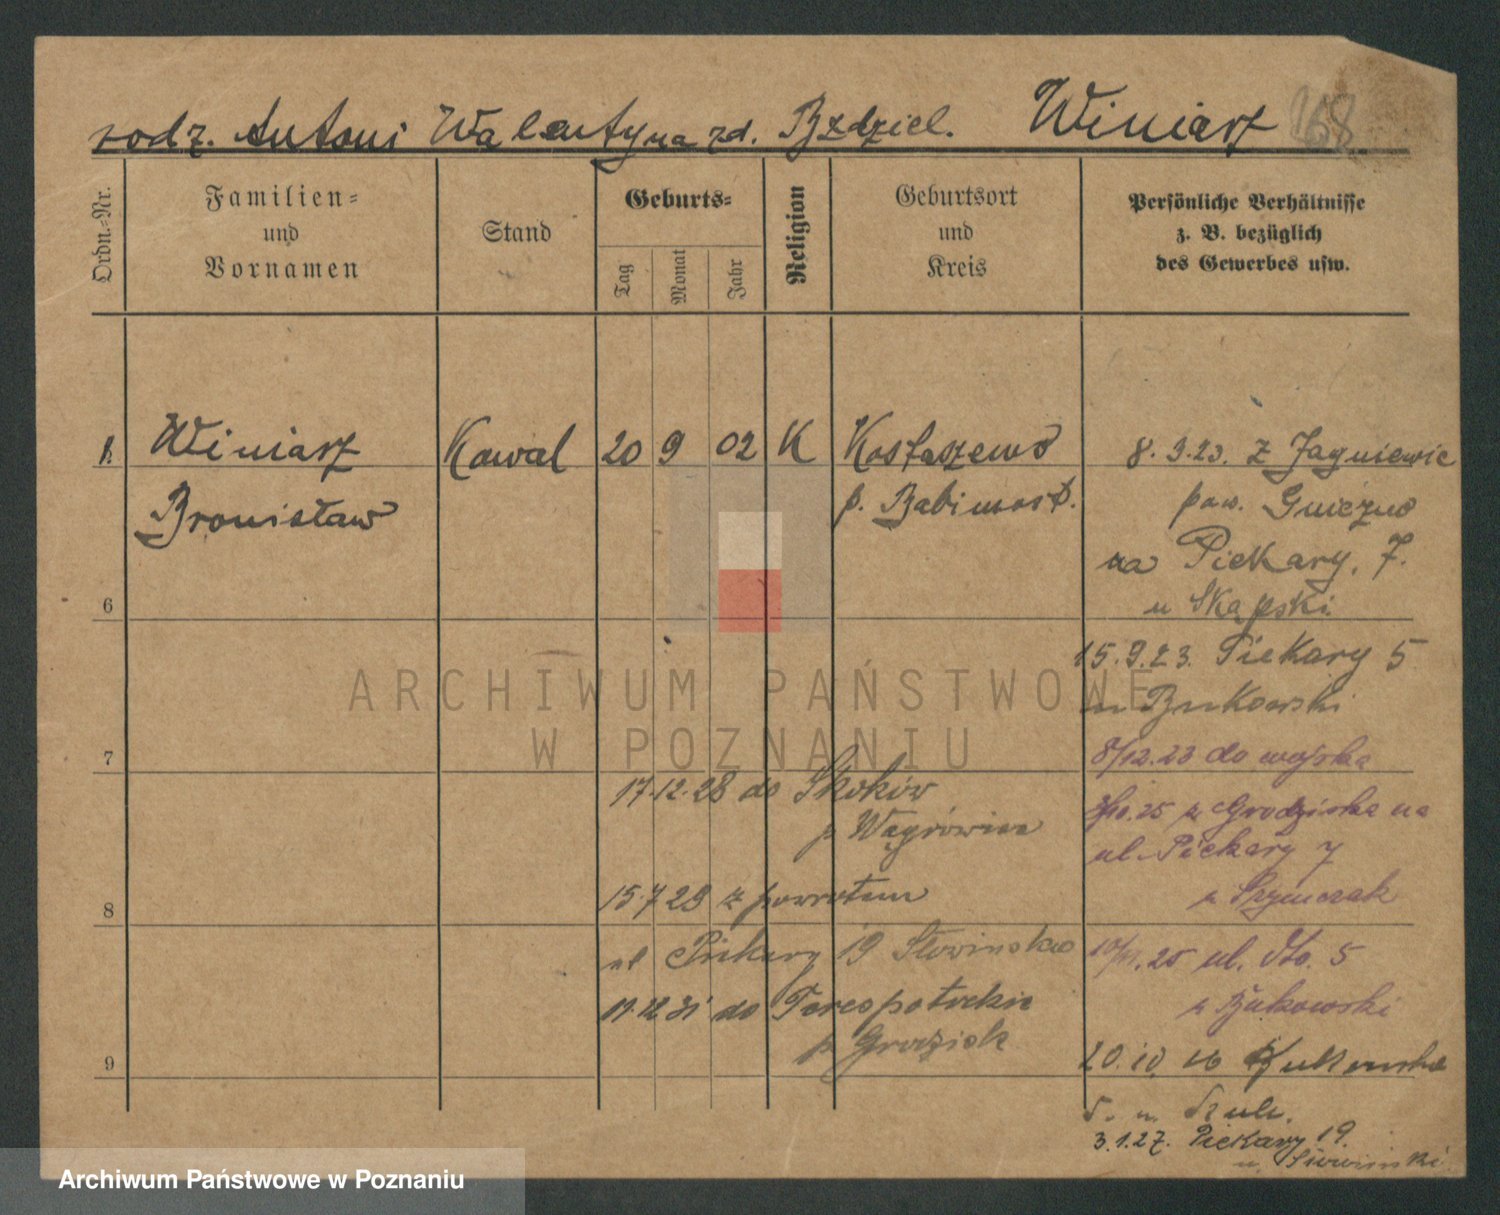 rodz. Antoni Walentyna zd. Bzdziel. Winiarz 168
Ordn.-Nr.
Familien-
und
Vornamen
Stand
Geburts-
Tag
Monat
Jahr
Religion
Geburtsort
und
Kreis
Persönliche Verhältnisse
z. B. bezüglich
des Gewerbes usw.
1. Winiarz Kowal 20 9 02 K Kostaszewo 8. 9.23. z Jagniewic
Bronisław p. Babimost. pow. Gniezno
na Piekary, 7.
6 u Skąpski.
15.9.23. Piekary 5
u Bukowski
7 8/12.23 do wojska
17.12.28 do Skoków
.25 z Grodziska na
p Wągrówiec
ul. Piekary 7
15.7 29 z powrotem
p Szymczak
8
ul Piekary 19 Słowinska
.25 ul. 5
17.12 31 do Terespotockie
p Bukowski
p Grodzisk
20.10. 26
9
5. u. Szulc.
3.1.27. Piekary 19.
u. Słowinski
ARCHIWUM PAŃSTWOWE
W POZNANIU
Archiwum Państwowe w Poznaniu